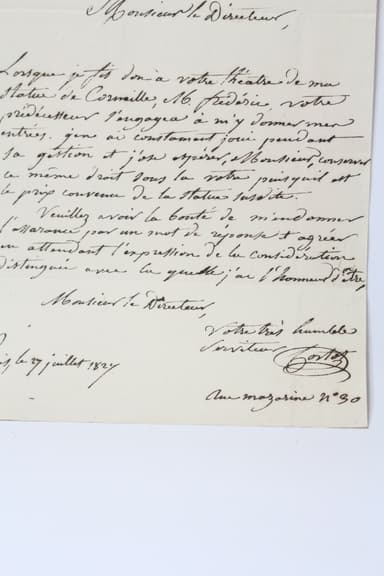 Monsieur le Directeur,
Lorsque je fis don a votre théatre de ma
statue de Corneille, M. frédéric, votre
prédécesseur s'engagea à m'y donner mes
entrées. j'en ai constament joui pendant
sa gestion et j'ose espérer, Monsieur, conserver
ce même droit sous la votre puisqu'il est
le prix convenu de la statue susdite.
Veuillez avoir la bonté de m'en donner
l'assurance par un mot de réponse et agréer
en attendant l'expression de la considération
distinguée avec la quelle j'ai l'honneur d'être,
Monsieur le Directeur,
Votre très humble
Serviteur Cortot
is, le 27 juillet 1827
Rue mazarine N° 30